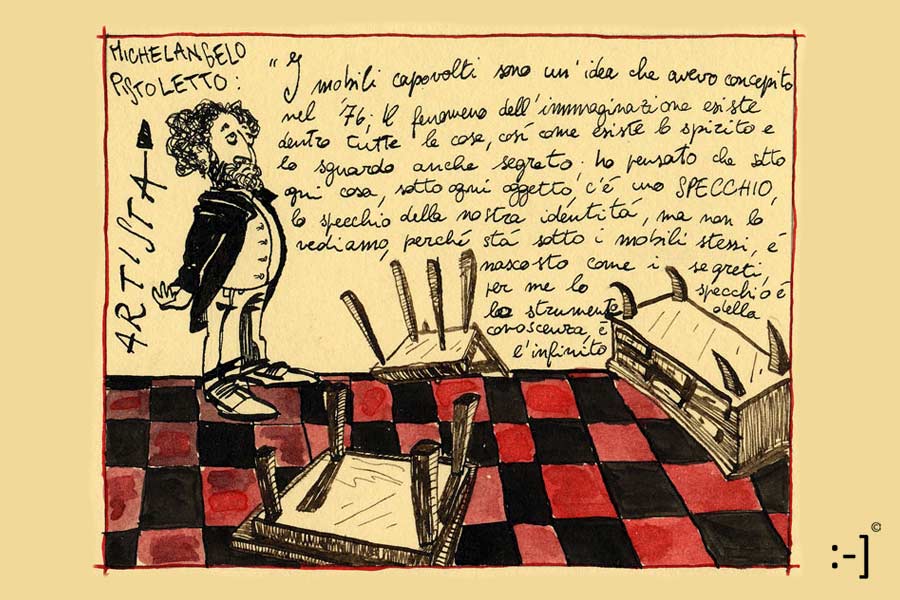 MICHELANGELO
PISTOLETTO:
ARTISTA
"I mobili capovolti sono un'idea che avevo concepito
nel '76; Il fenomeno dell'immaginazione esiste
dentro tutte le cose, così come esiste lo spirito e
lo sguardo anche segreto; ho pensato che sotto
ogni cosa, sotto ogni oggetto, c'é uno SPECCHIO,
lo specchio della nostra identitá, ma non lo
vediamo, perché stá sotto i mobili stessi, é
nascosto come i segreti,
per me lo specchio é
lo strumento della
conoscenza, é
l'infinito
:-]
©